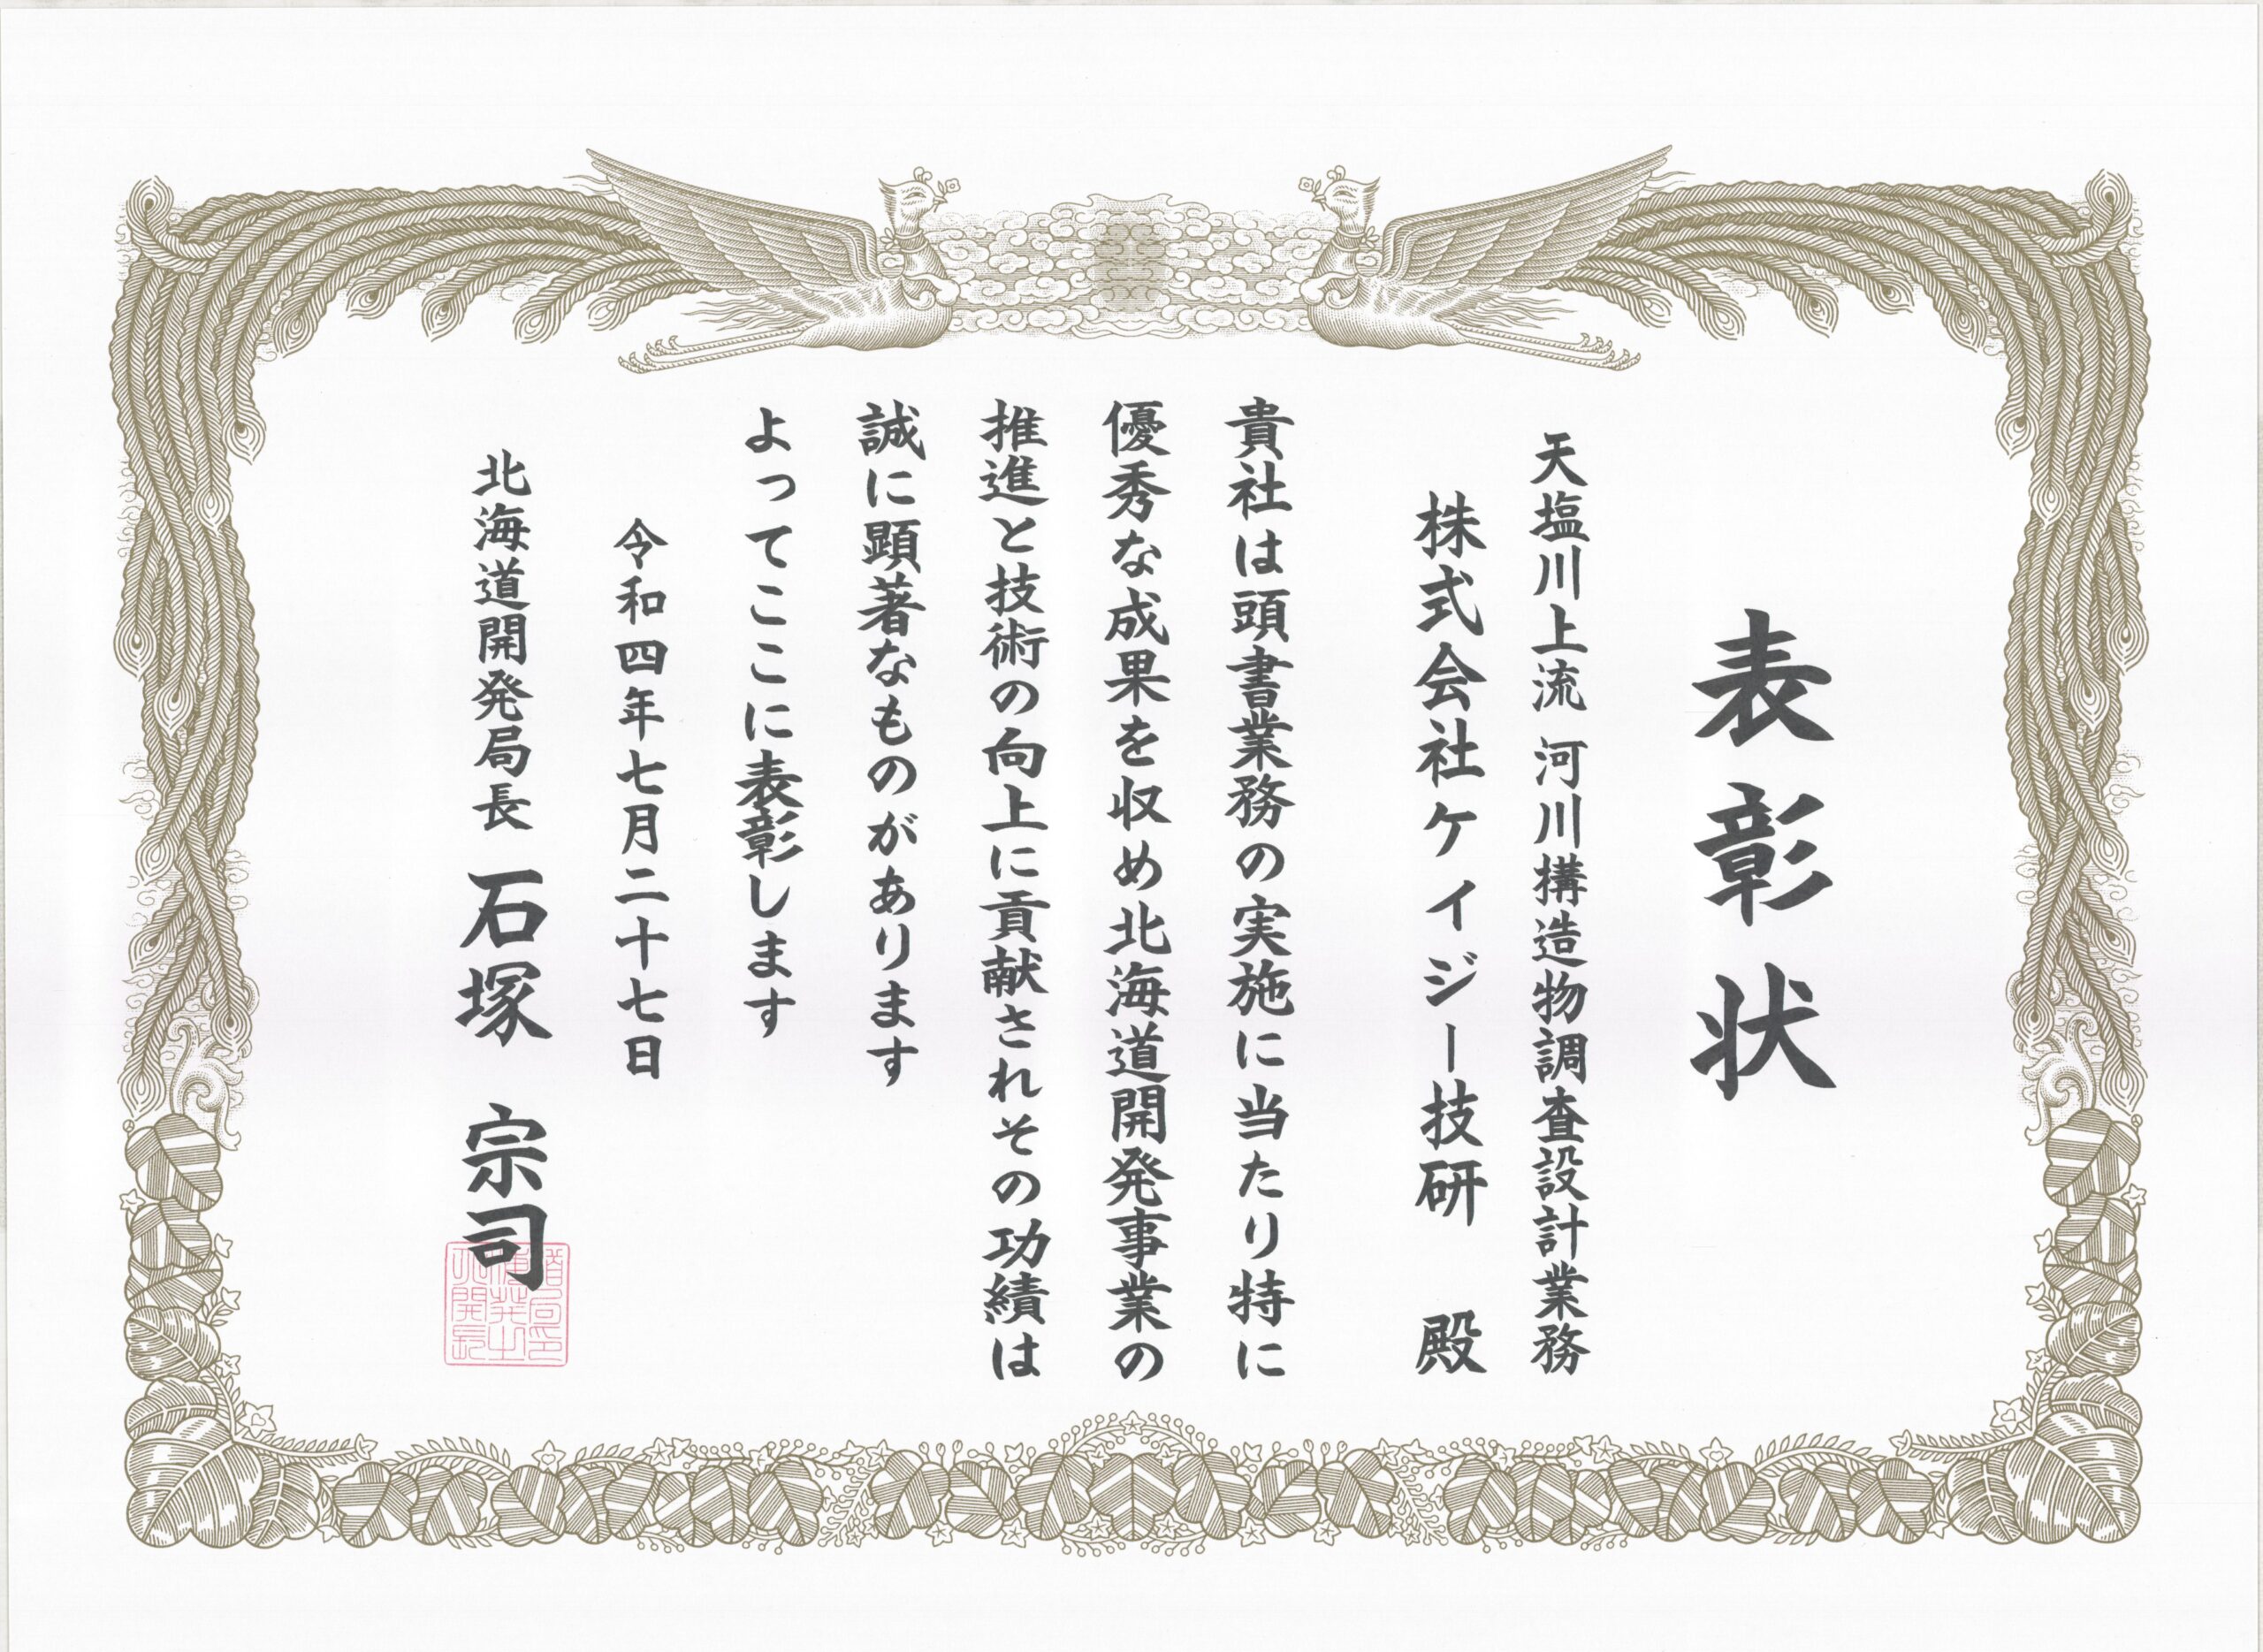 表彰状
天塩川上流 河川構造物調査設計業務
株式会社ケイジー技研 殿
貴社は頭書業務の実施に当たり特に
優秀な成果を収め北海道開発事業の
推進と技術の向上に貢献されその功績は
誠に顕著なものがあります
よってここに表彰します
令和四年七月二十七日
北海道開発局長 石塚 宗司